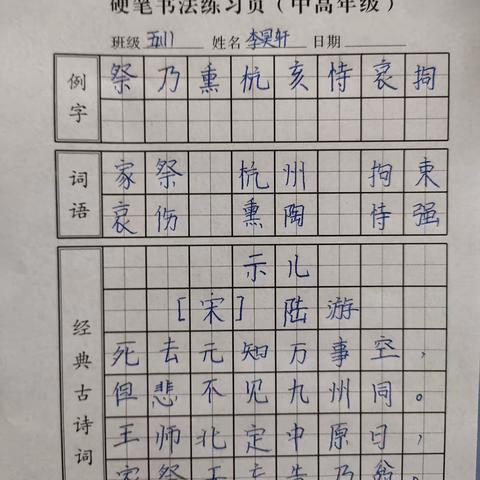 硬笔书法练习页（中高年级）
班级 五11 姓名 李昊轩 日期
例字
祭 乃 熏 杭 亥 恃 哀 拘
词语
家祭 杭州 拘束
哀伤 熏陶 恃强
经典古诗词
示儿
[宋] 陆游
死去元知万事空，
但悲不见九州同。
王师北定中原日，
家祭无忘告乃翁。